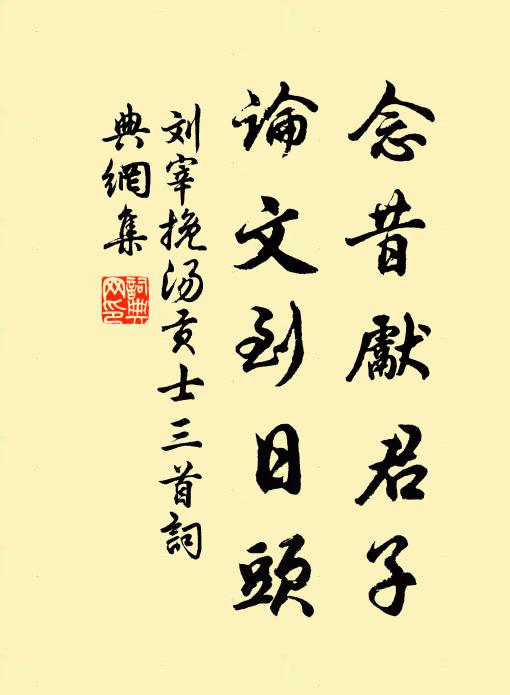 念昔獻君子
論文到日頭
刘宰挽汤贡士三首詞
典網集
詞典
网印